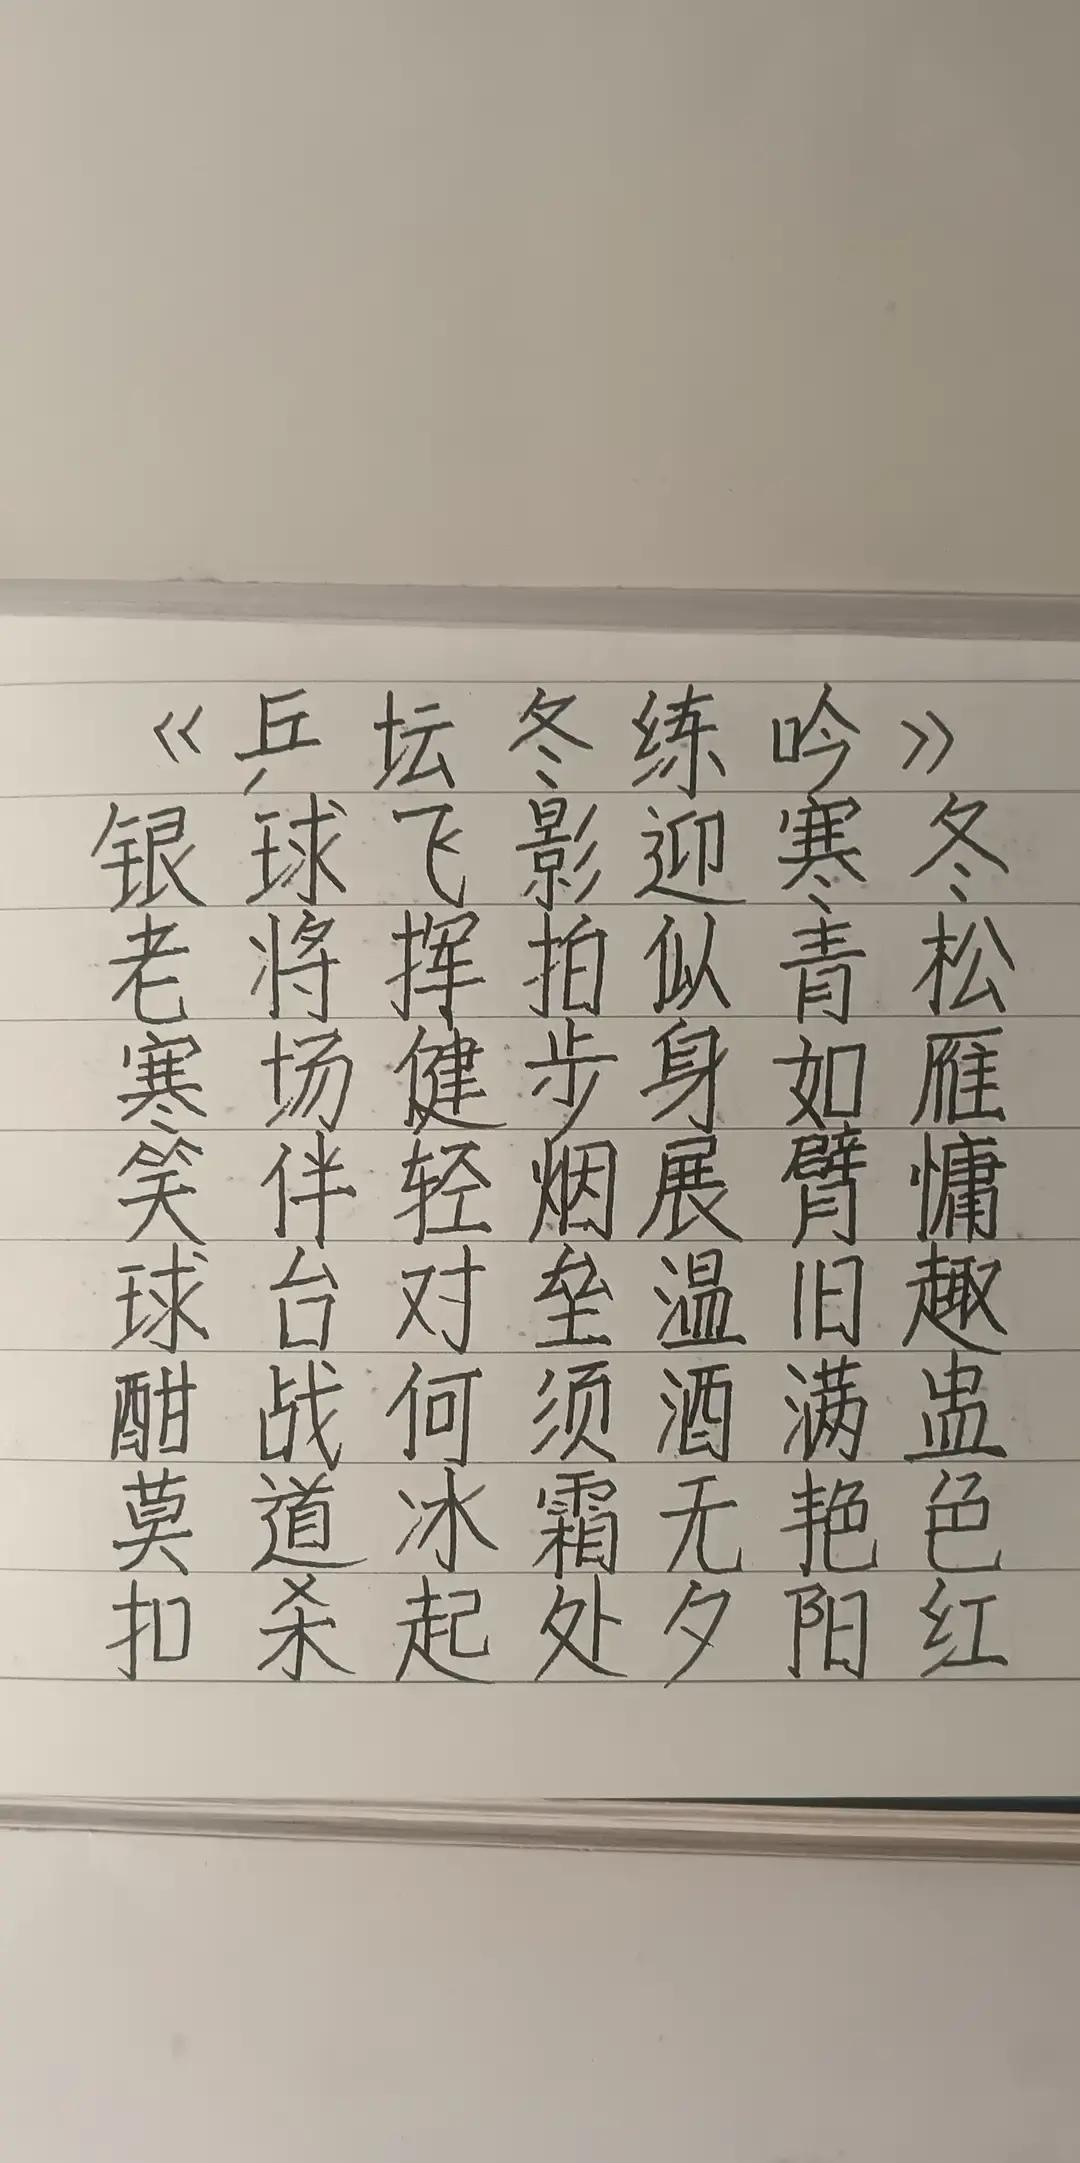 《乒坛冬练吟》
银球飞影迎寒冬
老将挥拍似青松
寒场健步身如雁
笑伴轻烟展臂慵
球台对垒温旧趣
酣战何须酒满盅
莫道冰霜无艳色
扣杀起处夕阳红